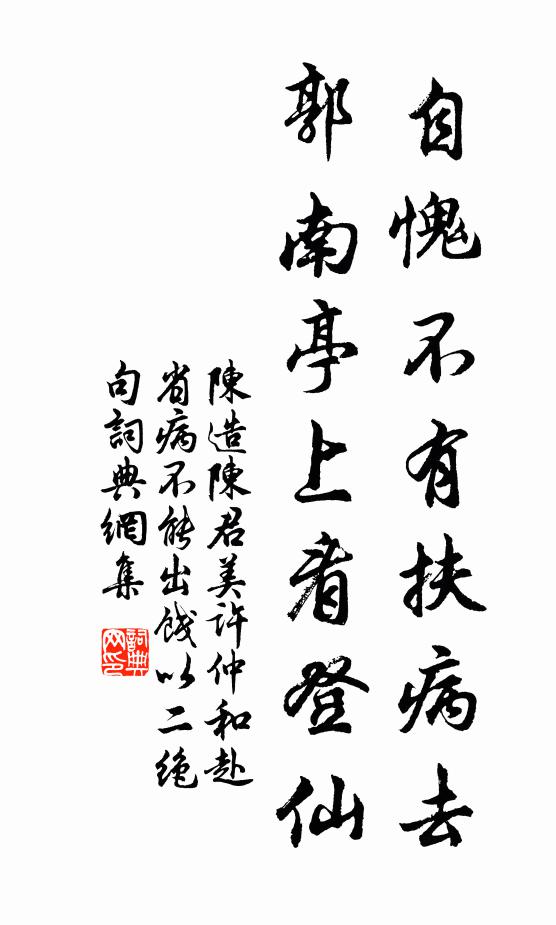 自愧不有扶病去
郭南亭上看登仙
陳造陳君美許仲和赴
省病不能出餞以二絶
句詞典網集
詞典
网印